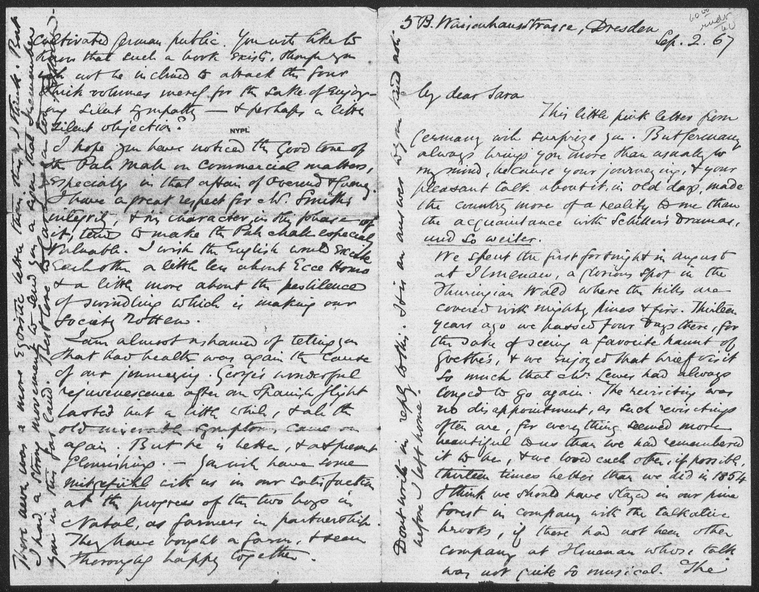 5 B. Waisenhausstrasse, Dresden
Sep. 2. 67
My dear Sara
This little pink letter from
Germany will surprize you. But Germany
always brings you more than usually to
my mind, because your journeying, & your
pleasant talk about it in old days, made
the country more of a reality to me than
the acquaintance with Schiller's Dramas,
und so weiter.
We spent the first fortnight in August
at Ilmenau, a glorious spot in the
Thuringian Wald where the hills are
covered with mighty pines & firs. Thirteen
years ago we passed four days there, for
the sake of seeing a favorite haunt of
Goethe's, & we enjoyed that brief visit
so much that Mr. Lewes had always
longed to go again. The revisiting was
no disappointment, as such revisitings
often are, for everything seemed more
beautiful to us than we had remembered
it to be, & we loved each other, if possible,
thirteen times better than we did in 1854.
I think we should have stayed in our pine
forest in company with the talkative
brooks, if there had not been other
company at Ilmenau whose talk
was not quite so musical. The
cultivated German public. You will like to
know that such a book exists, though you
will not be inclined to attack the four
thick volumes merely for the sake of enjoy-
ing silent sympathy — & perhaps a little
silent objection?
NYPL
I hope you have noticed the good tone of
the Pall Mall on commercial matters,
especially in that affair of Overend & Gurney.
I have a great respect for Mr. Smith's
integrity, & his character, in this phase of
it, tends to make the Pall Mall especially
valuable. I wish the English would excite
each other a little less about Ecce Homo
& a little more about the pestilence
of swindling which is making our
Society rotten.
I am almost ashamed of telling you
that bad health was again the cause
of our journeying. George's wonderful
rejuvenescence after our Spanish flight
lasted but a little while, & all the
old miserable symptoms came on
again. But he is better, & at present
flourishing. — You will have some
mitgefühl with us in our satisfaction
at the progress of the two boys in
Natal, as farmers in partnership.
They have bought a farm, & seem
thoroughly happy together.
There never was a more egoistic letter than this, I think. But
I had a strong movement to send you a sign that I remember
you in this far land. Best love to
Don't write in reply to this. It is an answer to your kind
before I left home.